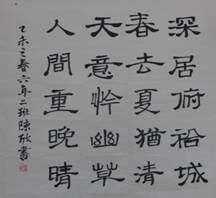 深居俯袷城
春去夏猶清
天意怜幽草
人間重晚晴
乙未之春六年二班陳欣書